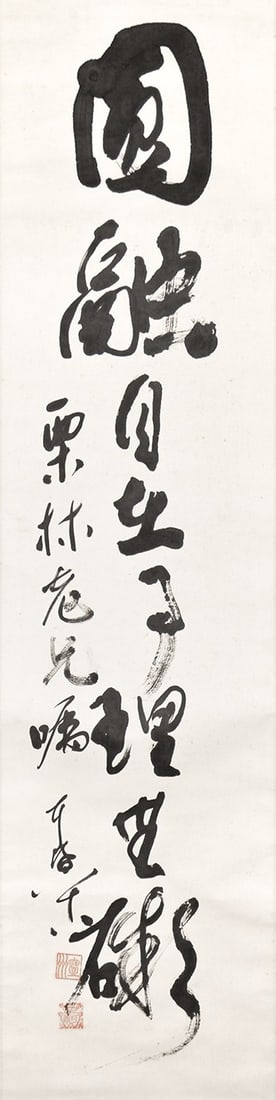 圓融
自在事理無礙
栗林老兄囑